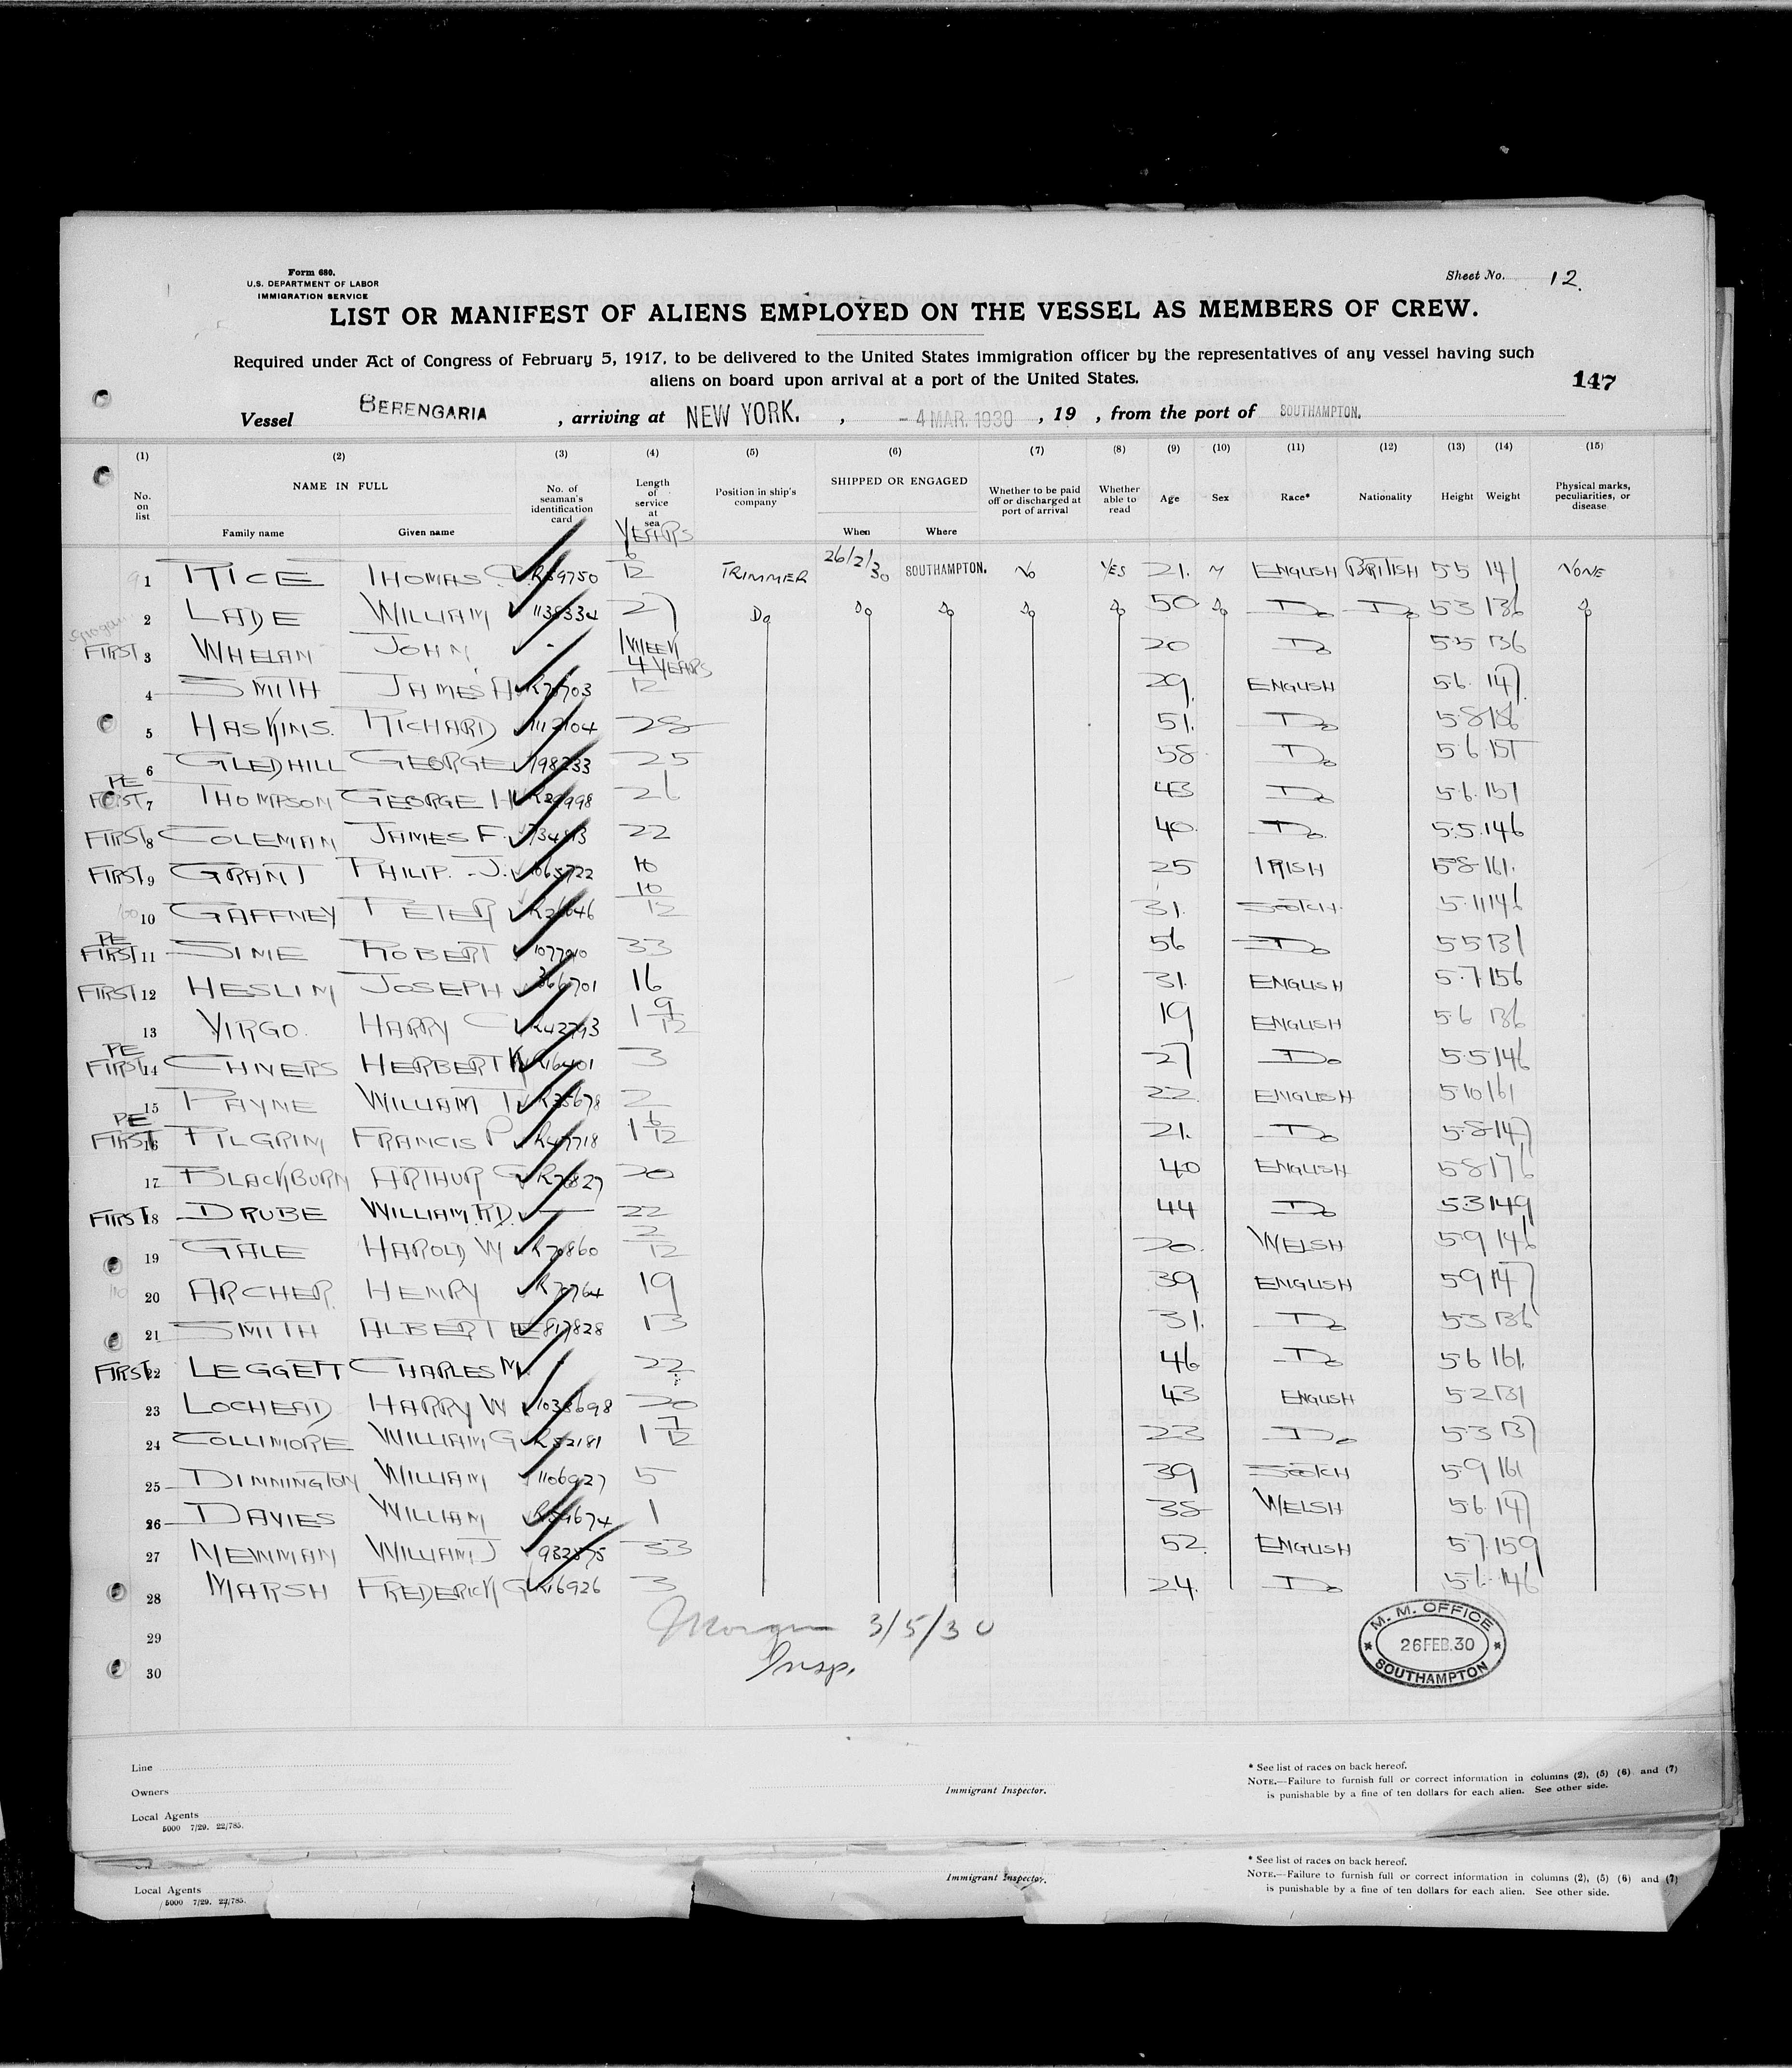 Form 680.
U.S. DEPARTMENT OF LABOR
IMMIGRATION SERVICE
Sheet No. 12.
LIST OR MANIFEST OF ALIENS EMPLOYED ON THE VESSEL AS MEMBERS OF CREW.
Required under Act of Congress of February 5, 1917, to be delivered to the United States immigration officer by the representatives of any vessel having such
aliens on board upon arrival at a port of the United States.
147
Vessel BERENGARIA, arriving at NEW YORK., -4 MAR. 1930, 19 , from the port of SOUTHAMPTON.
(1) (2) (3) (4) (5) (6) (7) (8) (9) (10) (11) (12) (13) (14) (15)
No. on list NAME IN FULL No. of seaman's identification card Length of service at sea Position in ship's company SHIPPED OR ENGAGED Whether to be paid off or discharged at port of arrival Whether able to read Age Sex Race* Nationality Height Weight Physical marks, peculiarities, or disease
Family name Given name YEARS When Where
1 RICE THOMAS R59750 12 TRIMMER 26/2/30 SOUTHAMPTON. No YES 21. M ENGLISH BRITISH 55 141 NONE
2 LADE WILLIAM 27 Do Do Do Do Do 50 Do Do Do 53 136 Do
FIRST 3 WHELAN JOHN - 4 YEARS 20 Do 55 136
4 SMITH JAMES H 12 29. ENGLISH 5.6. 147
5 HASKINS. RICHARD 28 51. Do 5.8
6 GLEDHILL GEORGE 25 58 Do 5.6 151
PE FIRST 7 THOMPSON GEORGE H 26 43 Do 5.6. 151
FIRST 8 COLEMAN JAMES F. 22 40. Do. 5.5. 146
FIRST 9 GRANT PHILIP. J. 10 25 IRISH 5.8 161.
10 GAFFNEY PETER 10/12 31. SCOTCH 5.11 146
PE FIRST 11 SIME ROBERT 33 56 Do 55 131
FIRST 12 HESLIN JOSEPH 16 31. ENGLISH 5.7 156
13 VIRGO. HARRY C 1 9/12 19 ENGLISH 5.6 136
PE FIRST 14 CHIVERS HERBERT R16401 3 27 Do 5.5 146
15 PAYNE WILLIAM T R35678 2 22 ENGLISH 5.10 161
PE FIRST 16 PILGRIM FRANCIS P R47718 1 6/12 21. Do 5.8 147
17 BLACKBURN ARTHUR G R78827 20 40 ENGLISH 5.8 176
FIRST 18 DRUBE WILLIAM.R.D. — 22 44 Do 53 149
19 GALE HAROLD W R70860 2/12 20. WELSH 5.9 146
20 ARCHER. HENRY 19 39 ENGLISH 5.9 147
21 SMITH ALBERT E 817828 13 31. Do 53 136
FIRST 22 LEGGETT CHARLES M. 22 46 Do 5.6 161.
23 LOCHEAD HARRY W 1038698 20 43 ENGLISH 5.2 131
24 COLLIMORE WILLIAM G R52181 1 7/12 23 Do 5.3 137
25 DINNINGTON WILLIAM 1106927 5 39 SCOTCH 5.9 161
26 DAVIES WILLIAM 1 38 WELSH 5.6. 147
27 NEWMAN WILLIAM J 33 52. ENGLISH 5.7. 159
28 MARSH FREDERICK G R16926 3 24. Do 5.6. 146
29
30
Morgan 3/5/30
Insp.
M. M. OFFICE
26 FEB. 30
SOUTHAMPTON
Line
Owners
Local Agents
5000 7/29. 22/785.
Immigrant Inspector.
* See list of races on back hereof.
NOTE.—Failure to furnish full or correct information in columns (2), (5) (6) and (7)
is punishable by a fine of ten dollars for each alien. See other side.
Local Agents
5000 7/29. 22/785.
Immigrant Inspector.
* See list of races on back hereof.
NOTE.—Failure to furnish full or correct information in columns (2), (5) (6) and (7)
is punishable by a fine of ten dollars for each alien. See other side.